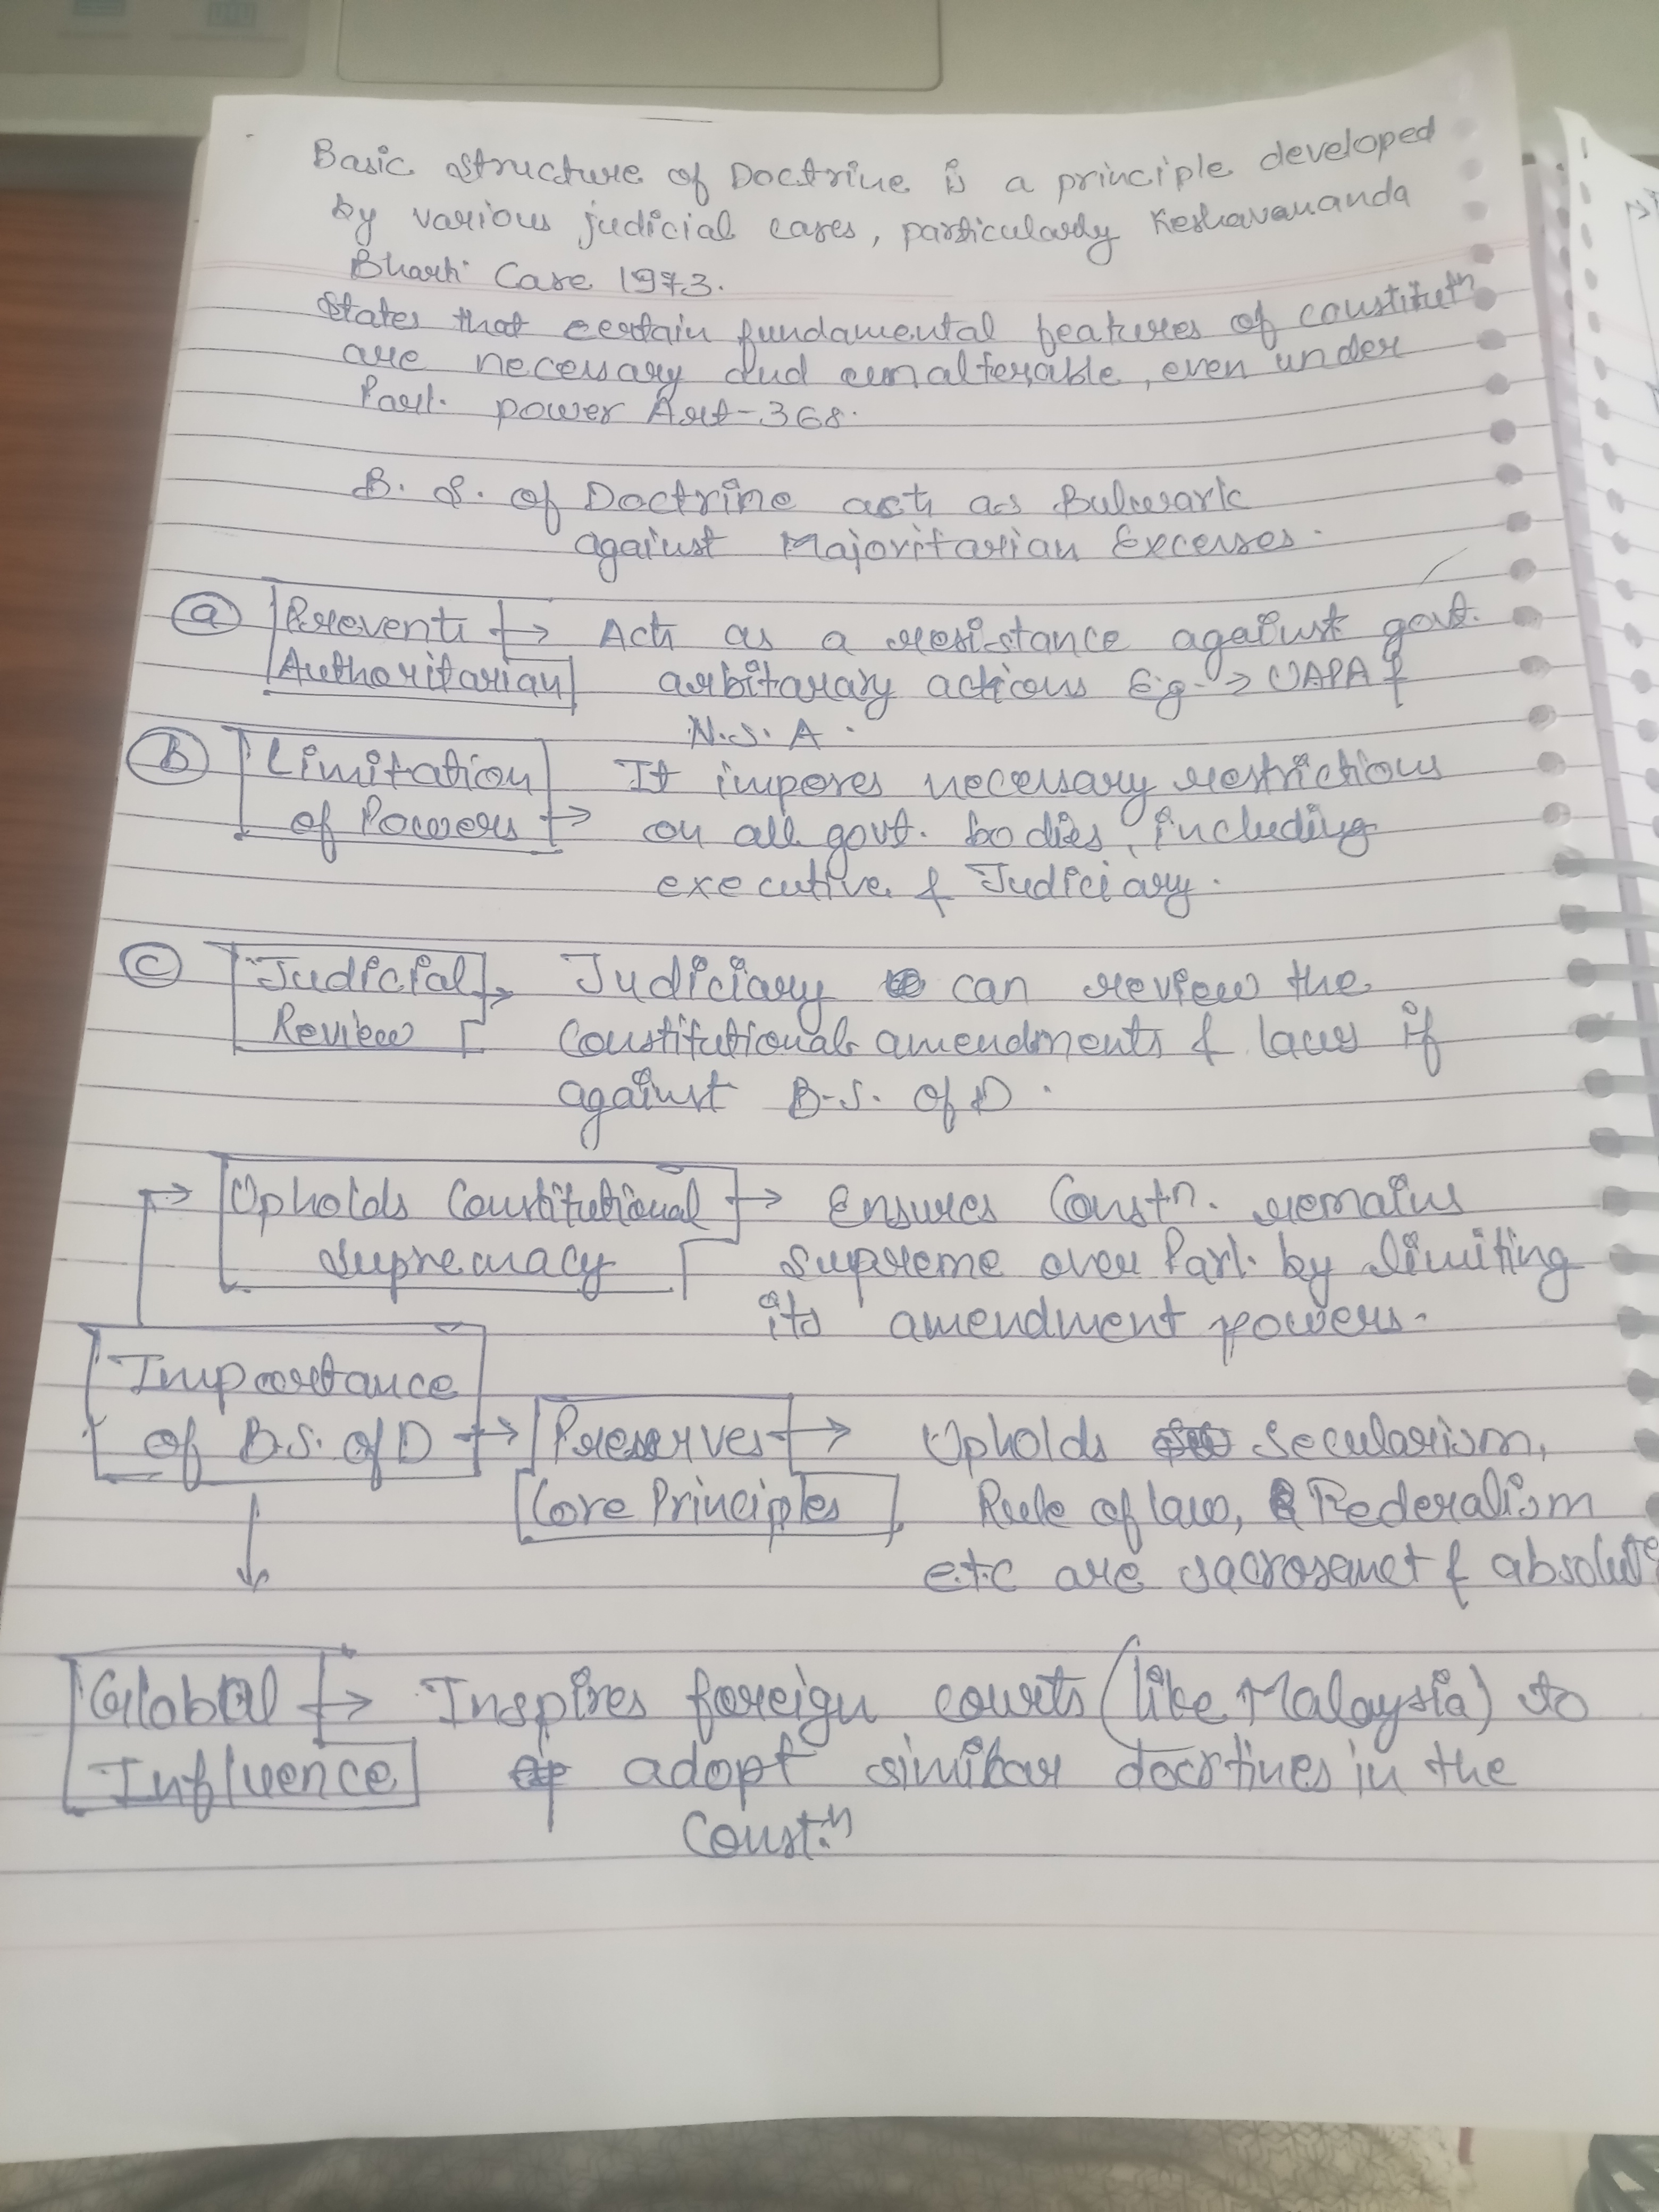 Basic Structure of Doctrine is a principle developed
by various judicial cases, particularly Keshavananda
Bharti Case 1973.
States that certain fundamental features of constitutn
are necessary and unalterable, even under
Parl. power Art-368.
B. S. of Doctrine acts as Bulwark
against Majoritarian Excesses.
(a) Prevents Authoritarian → Acts as a resistance against govt.
arbitarary actions Eg → UAPA &
N.S.A.
(b) Limitation of Powers → It imposes necessary restrictions
on all govt. bodies, including
executive & Judiciary.
(c) Judicial Review → Judiciary can review the
Constitutional amendments & laws if
against B.S. of D.
→ Upholds Constitutional Supremacy → Ensures Constn. remains
supreme over Parl. by limiting
its amendment powers.
Importance
of B.S. of D → Preserves Core Principles → Upholds Secularism,
Rule of law, Federalism
etc are sacrosanct & absolute
↓
Global Influence → Inspires foreign courts (like Malaysia) to
adopt similar docrtines in the
Const.n